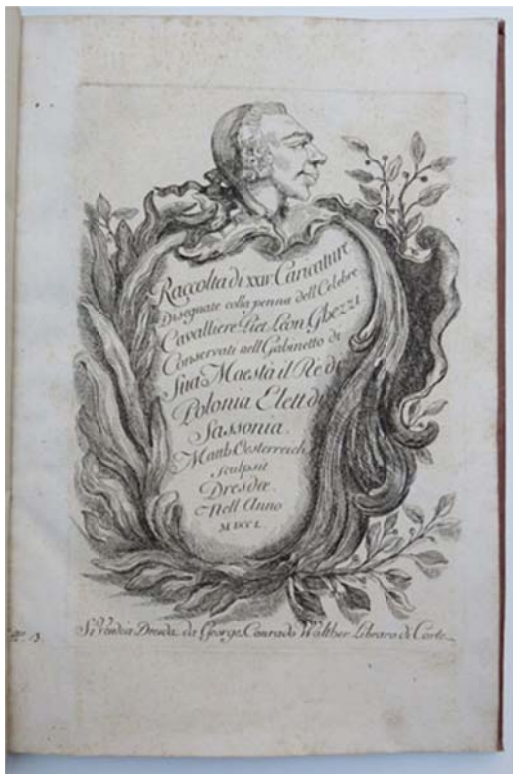 Raccolta di XXIV Caricature
Disegnate colla penna dell Celebre
Cavalliere Piet. Leon. Ghezzi
Conservati nell Gabinetto di
Sua Maestà il Rè di
Polonia Elett. di
Sassonia.
Matth. Oesterreich
sculpsit
Dresdæ.
Nell Anno
MDCCL
Si Vende a Dresda da George Conrado Walther Libraro di Corte